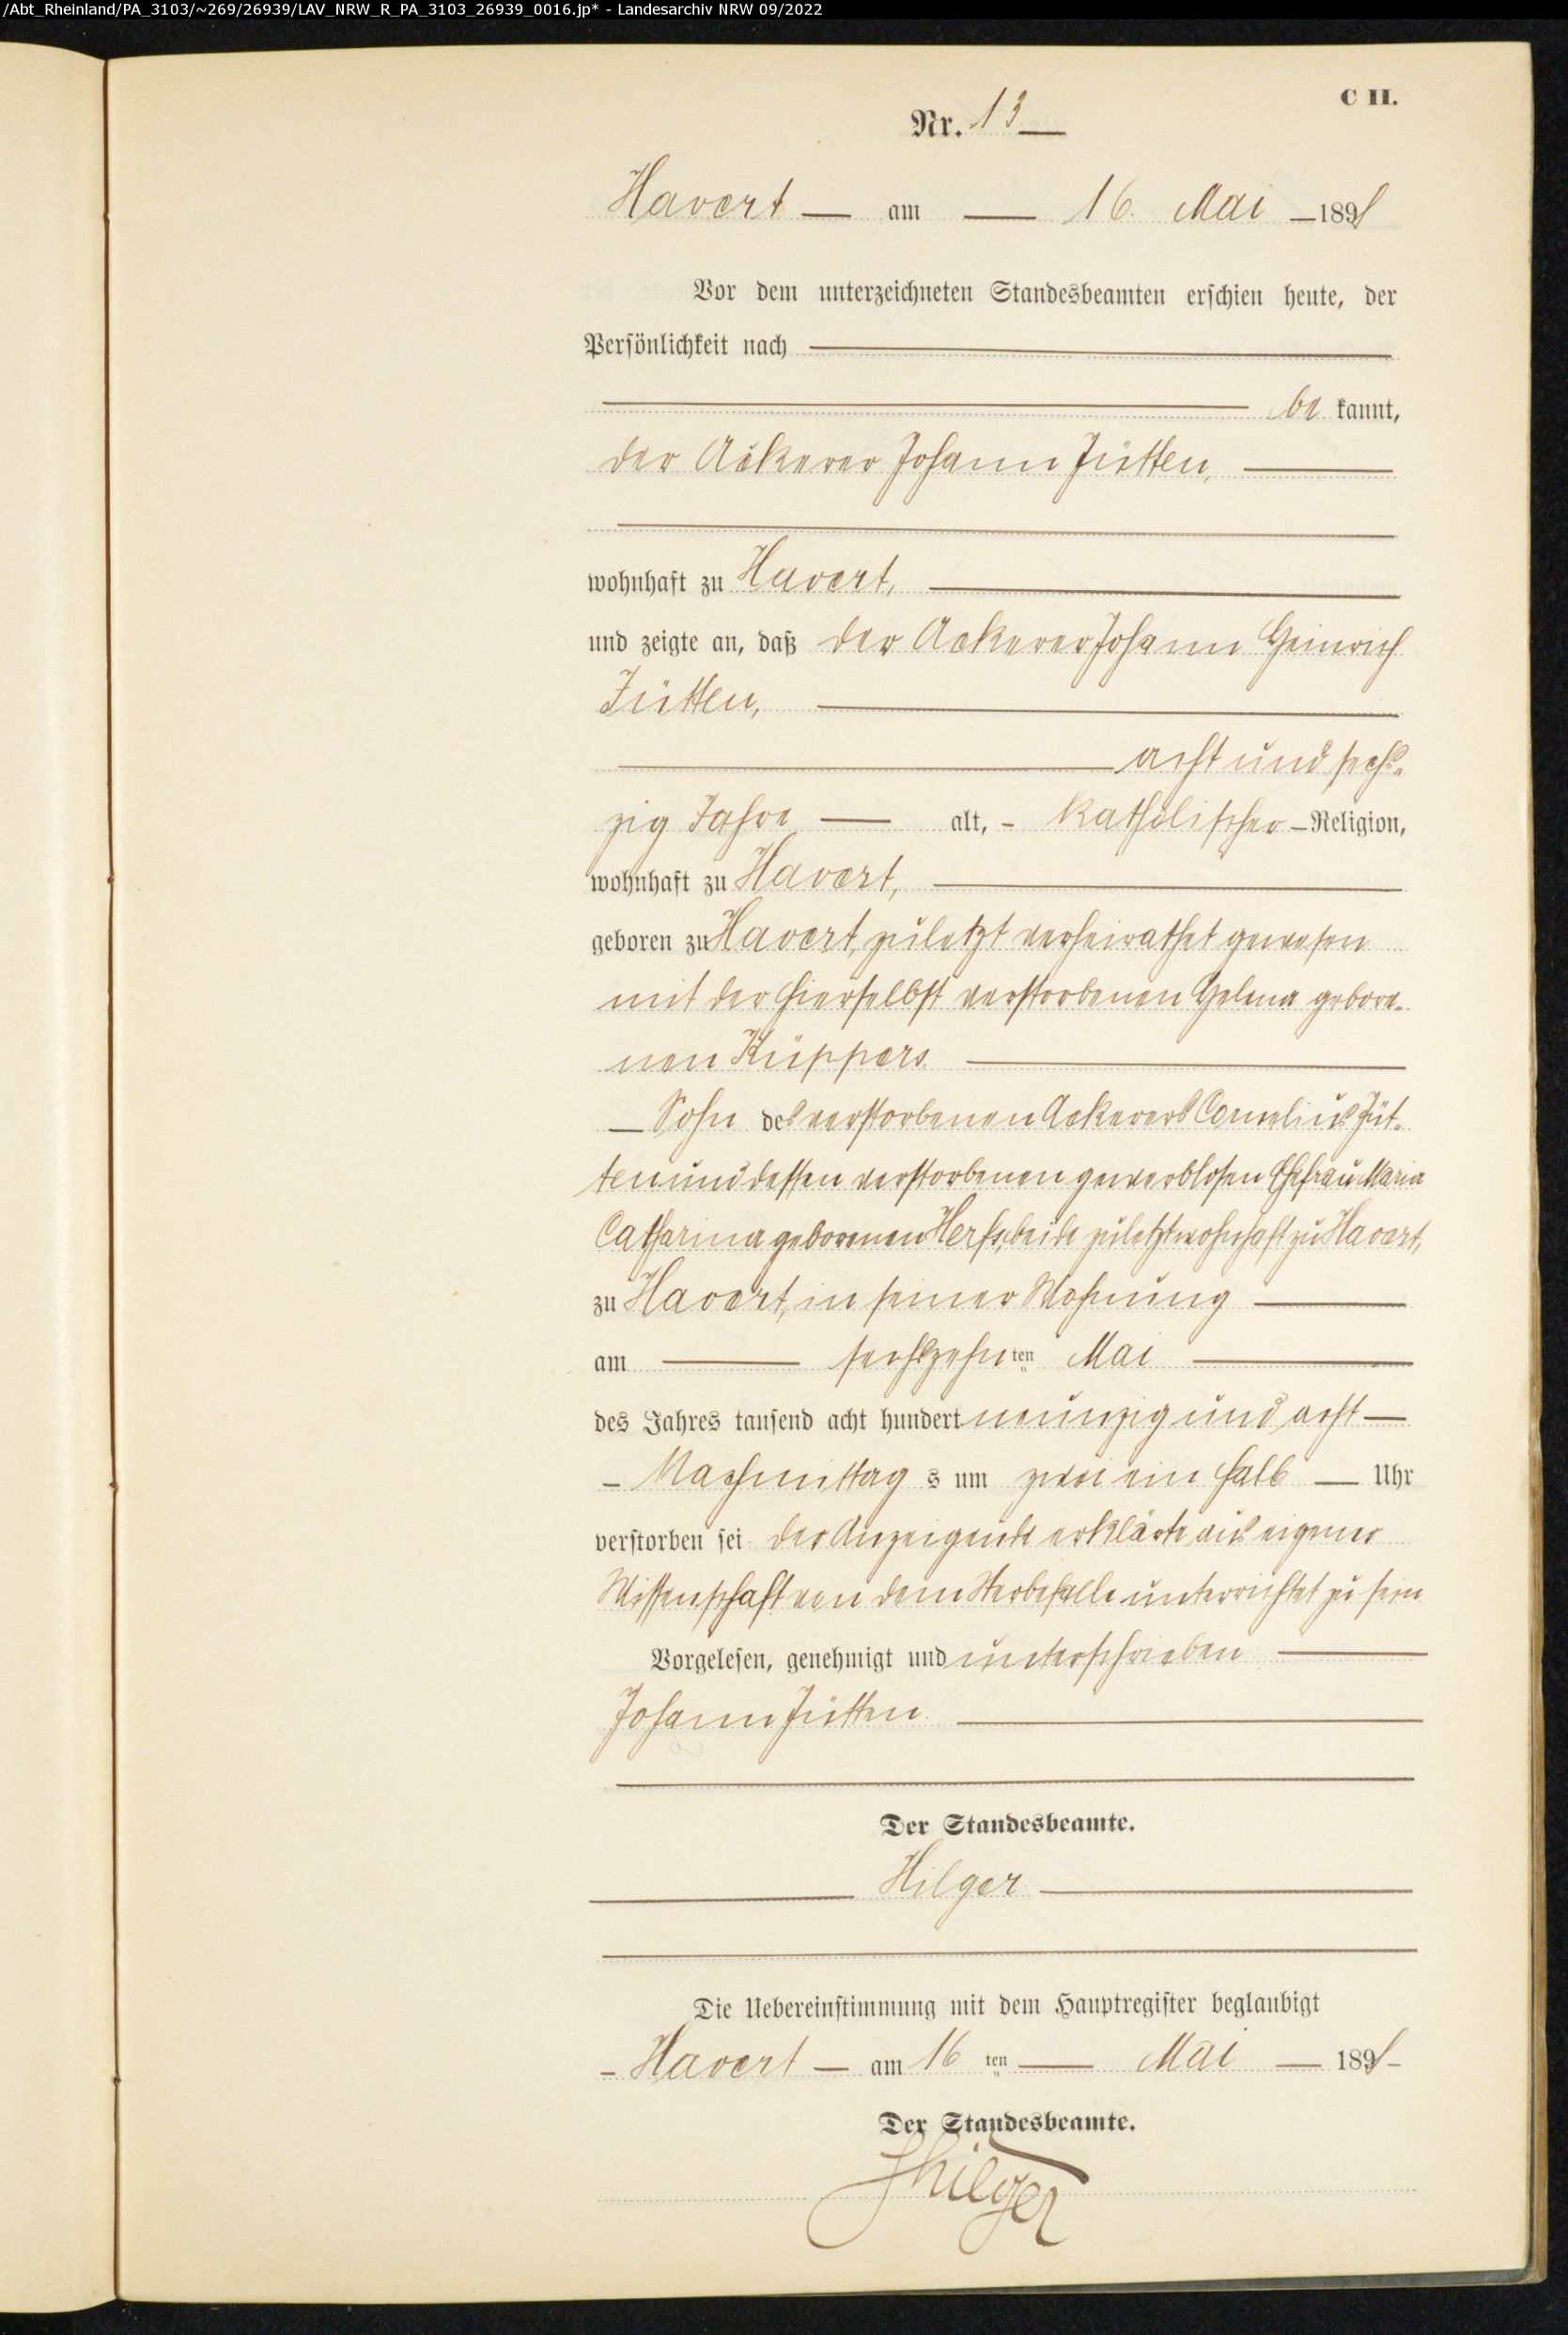 /Abt_Rheinland/PA_3103/~269/26939/LAV_NRW_R_PA_3103_26939_0016.jp* - Landesarchiv NRW 09/2022
C II.
Nr. 13
Havert am 16. Mai 1898
Vor dem unterzeichneten Standesbeamten erschien heute, der
Persönlichkeit nach
be kannt,
der Ackerer Johann Jütten,
wohnhaft zu Havert,
und zeigte an, daß der Ackerer Johann Heinrich
Jütten,
acht und sech-
zig Jahre alt, - katholischer - Religion,
wohnhaft zu Havert,
geboren zu Havert, zuletzt verheirathet gewesen
mit der hierselbst verstorbenen Helena gebore-
nen Küppers.
Sohn des verstorbenen Ackerers Cornelius Jüt-
ten und dessen verstorbenen gewerblosen Ehefrau Maria
Catharina geborenen Herfs, beide zuletzt wohnhaft zu Havert,
zu Havert, in seiner Wohnung
am sechszehn ten Mai
des Jahres tausend acht hundert neunzig und acht
- Nachmittag s um zwei ein halb Uhr
verstorben sei der Anzeigende erklärte aus eigener
Wissenschaft von dem Sterbefalle unterrichtet zu sein
Vorgelesen, genehmigt und unterschrieben
Johann Jütten.
Der Standesbeamte.
Hilger
Die Uebereinstimmung mit dem Hauptregister beglaubigt
- Havert - am 16 ten Mai 1898 -
Der Standesbeamte.
Hilger